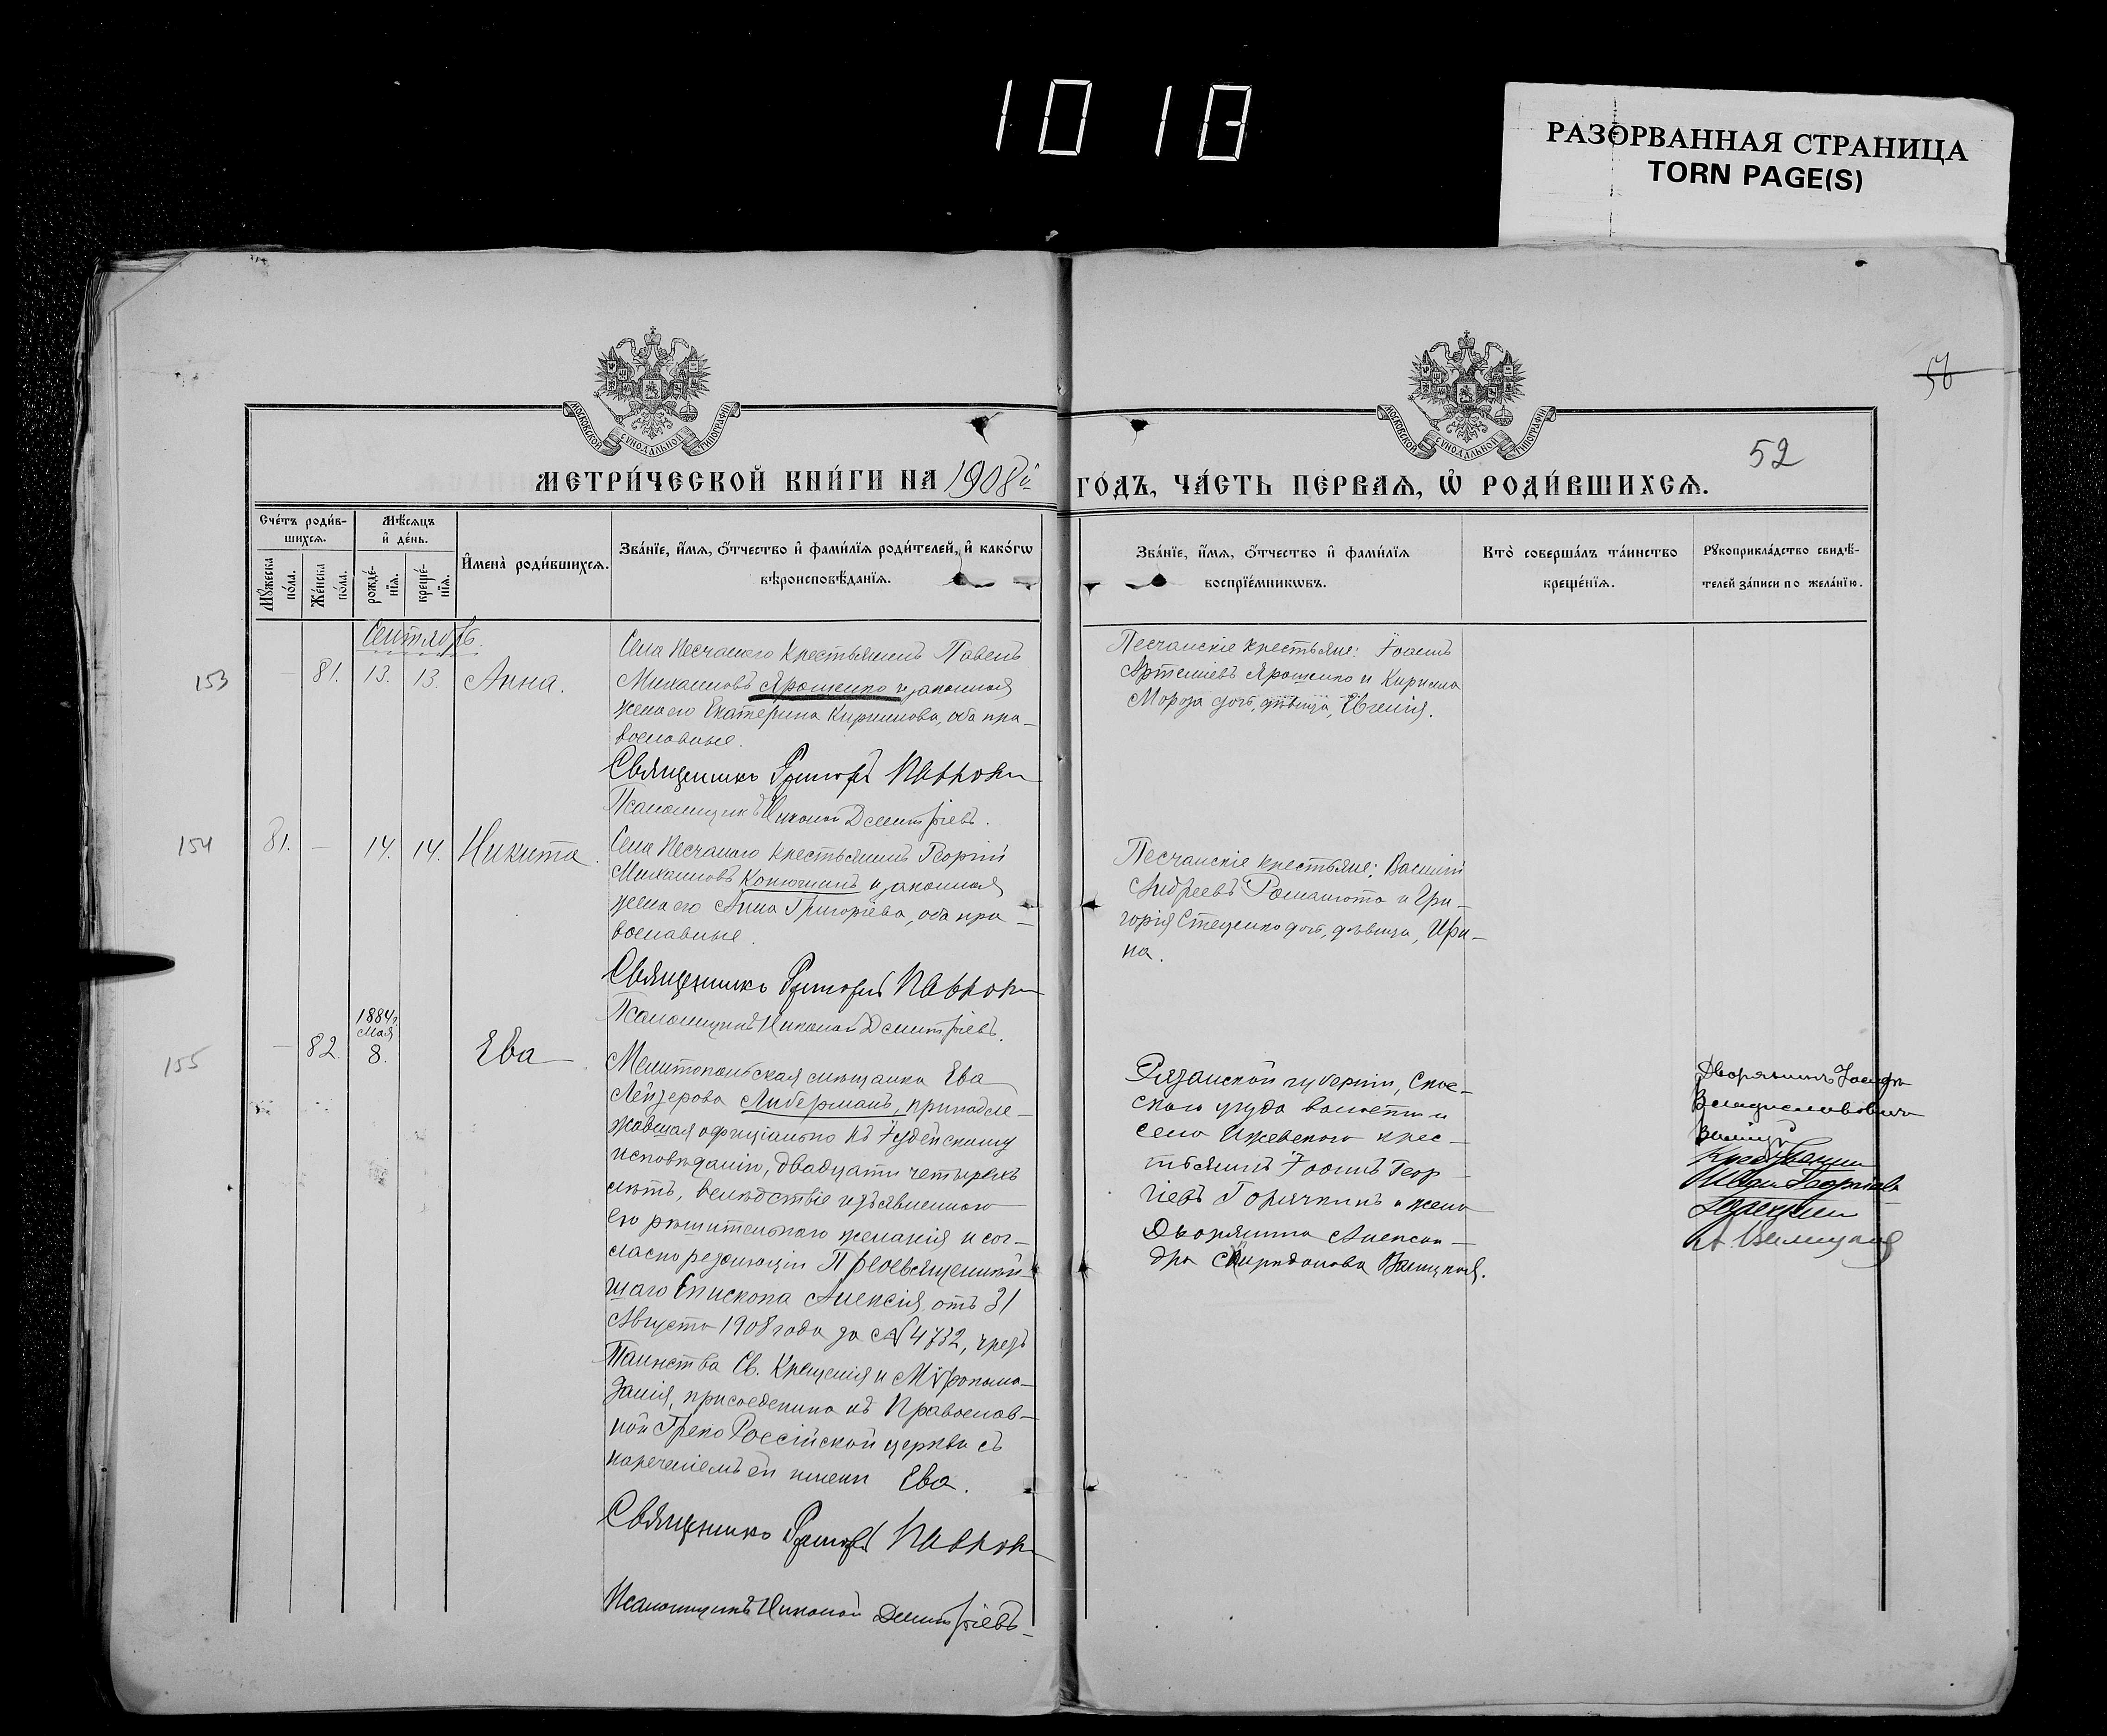 1018
РАЗОРВАННАЯ СТРАНИЦА
TORN PAGE(S)
56
52
МОСКОВСКОЙ СУНОДАЛЬНОЙ ТИПОГРАФІИ
МОСКОВСКОЙ СУНОДАЛЬНОЙ ТИПОГРАФІИ
МЕТРИ́ЧЕСКОЙ КНИ́ГИ НА 1908й ГО́ДЪ, ЧА́СТЬ ПЕ́РВАѦ, Ѡ҆ РОДИ́ВШИХСѦ.
Сче́тъ роди́в-
шихсѧ.
Мѣ́сѧцъ
и҆ де́нь.
Мꙋ́жеска по́ла.
Же́нска по́ла.
рожде́-
нїѧ.
креще́-
нїѧ.
И҆мена̀ роди́вшихсѧ.
Зва́нїе, и҆́мѧ, ѻ҆́тчество и҆ фами́лїѧ роди́телей, и҆ како́гѡ
вѣроисповѣ́данїѧ.
Зва́нїе, и҆́мѧ, ѻ҆́тчество и҆ фами́лїѧ
воспрїе́мникѡвъ.
Кто̀ соверша́лъ та́инство
креще́нїѧ.
Рꙋкоприкла́дство свидѣ́-
телей за́писи по жела́нїю.
Сентябрь.
153 — 81. 13. 13. Анна.
Села Песчанаго крестьянинъ Павелъ
Михаиловъ Ярошенко и законная
жена его Екатерина Кириллова, оба пра-
вославные.
Священникъ Григорій
Псаломщикъ Николай Дмитріевъ.
Песчанскіе крестьяне: Іоаннъ
Артеміевъ Ярошенко и Кирилла
Мороза дочь, дѣвица, Евгенія.
154 81. — 14. 14. Никита.
Села Песчанаго крестьянинъ Георгій
Михаиловъ Конюшинъ и законная
жена его Анна Григоріева, оба пра-
вославные.
Священникъ Григорій
Псаломщикъ Николай Дмитріевъ.
Песчанскіе крестьяне: Василій
Андреевъ Романюта и Гри-
горія Стеценко дочь, дѣвица, Ири-
на.
155 — 82. 1884 г.
Мая
8. Ева
Мелитопольская мѣщанка Ева
Лейзерова Либерманъ, принадле-
жавшая офиціально къ Іудейскому
исповѣданію, двадцати четырехъ
лѣтъ, вслѣдствіе изъявленнаго
ею рѣшительнаго желанія и сог-
ласно резолюціи Преосвященнѣй-
шаго Епископа Алексія, отъ 31
Августа 1908 года за № 4732, чрезъ
Таинства Св. Крещенія и Мѵропома-
занія, присоединена къ Православ-
ной Греко Россійской церкви съ
нареченіемъ ей имени Ева.
Священникъ Григорій
Псаломщикъ Николай Дмитріевъ
Рязанской губерніи, Спас-
скаго уѣзда волости и
села Ижевскаго крес-
тьянинъ Іоаннъ Геор-
гіевъ Горячкинъ и жена
Дворянина Алексан-
дра Спиридонова Валицкая.
Дворянинъ Іосифъ
Владиславовичъ
Иванъ Георгіевъ